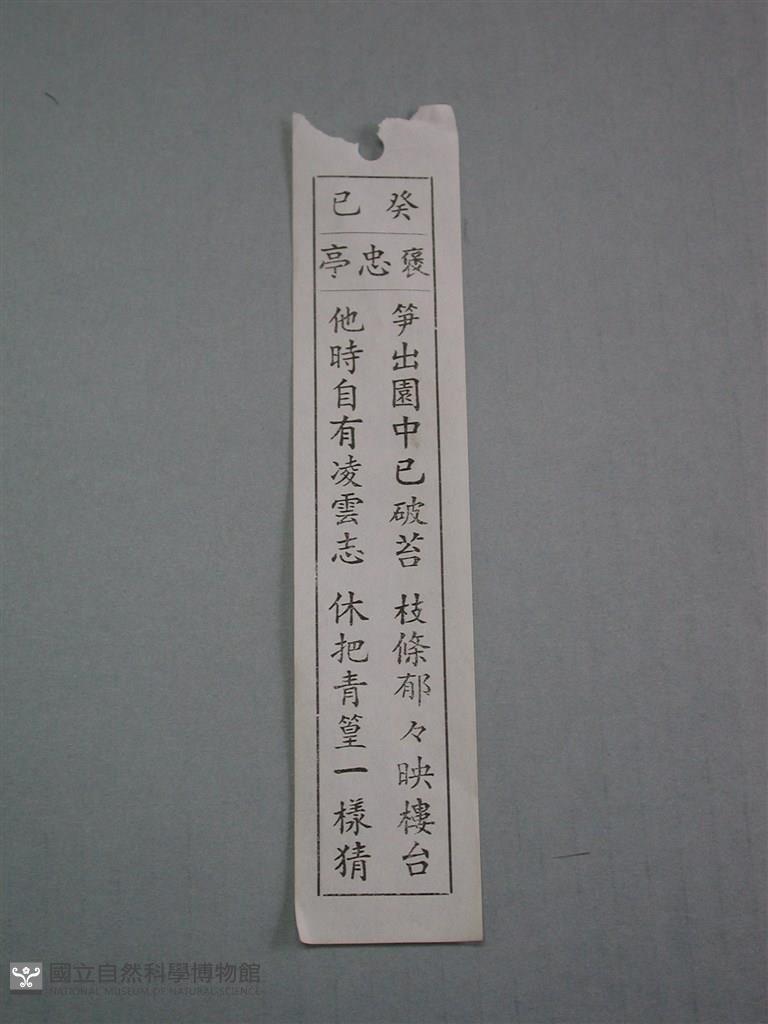 癸巳
褒忠亭
笋出園中已破苔 枝條郁々映樓台
他時自有凌雲志 休把青篁一樣猜
國立自然科學博物館
NATIONAL MUSEUM OF NATURAL SCIENCE